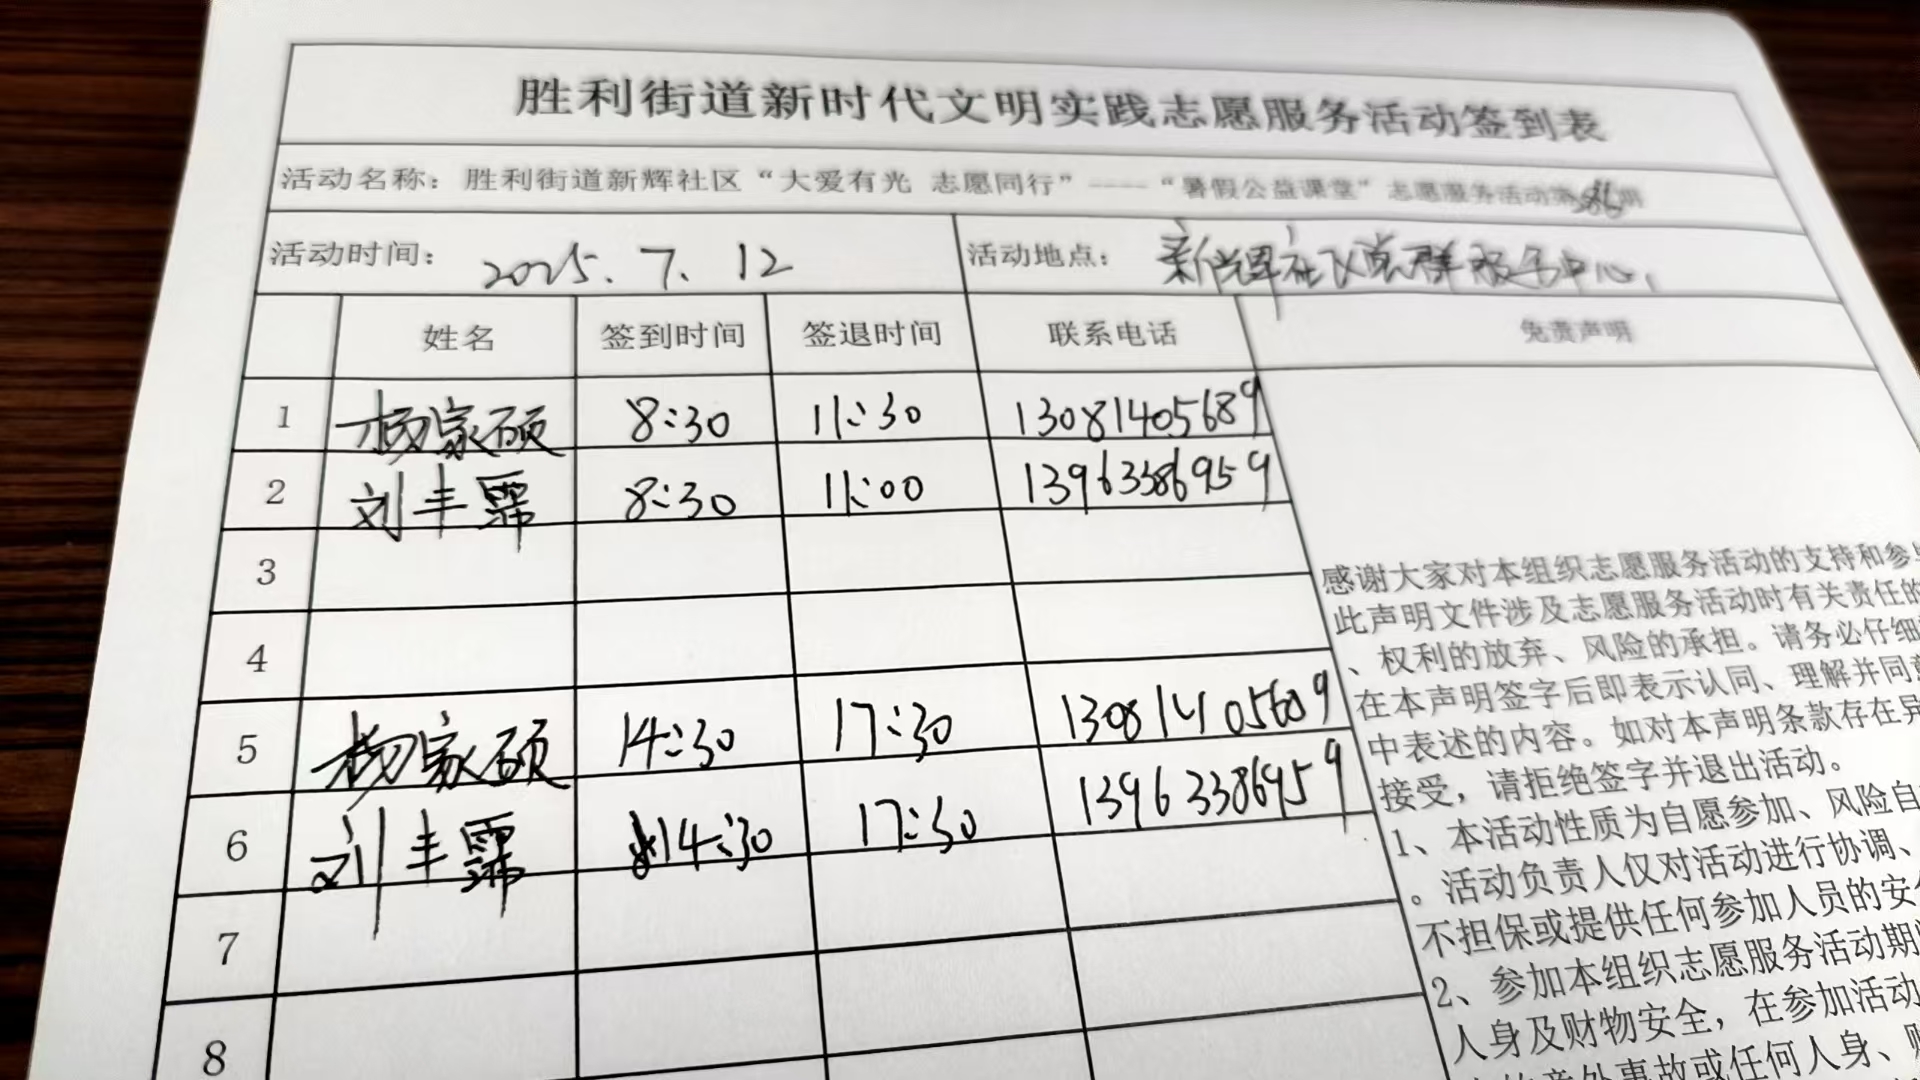 胜利街道新时代文明实践志愿服务活动签到表
活动名称：胜利街道新辉社区“大爱有光 志愿同行”----“暑假公益课堂”志愿服务活动第386期
活动时间：2025.7.12 活动地点：新辉社区党群服务中心
姓名 签到时间 签退时间 联系电话 免责声明
1 杨家硕 8:30 11:30 13081405689
2 刘丰霈 8:30 11:00 13963386959
3
4
5 杨家硕 14:30 17:30 13081405689
6 刘丰霈 14:30 17:30 13963386959
7
8
感谢大家对本组织志愿服务活动的支持和参与
此声明文件涉及志愿服务活动时有关责任的
、权利的放弃、风险的承担。请务必仔细
在本声明签字后即表示认同、理解并同意
中表述的内容。如对本声明条款存在异
接受，请拒绝签字并退出活动。
1、本活动性质为自愿参加、风险自
。活动负责人仅对活动进行协调、
不担保或提供任何参加人员的安全
2、参加本组织志愿服务活动期
人身及财物安全，在参加活动
的意外事故或任何人身、财